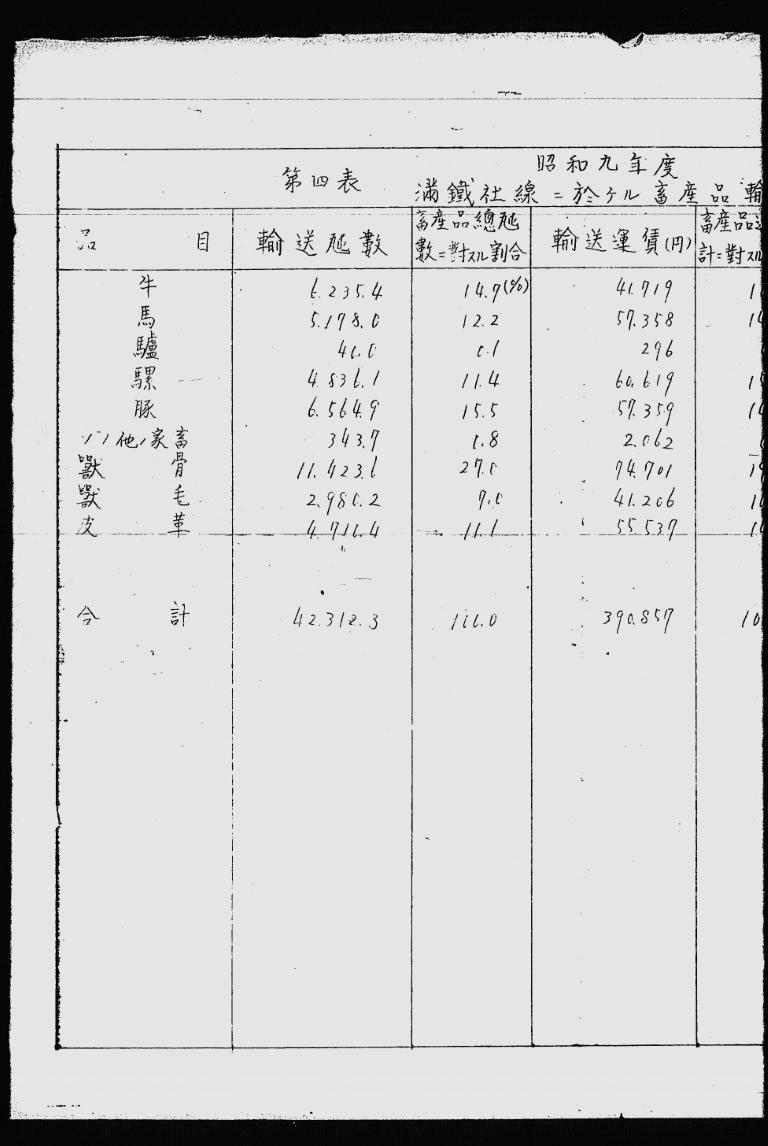 昭和九年度
第四表 滿鐵社線ニ於ケル畜産品輸
品目 輸送瓲數 畜産品總瓲 輸送運賃(円) 畜産品
數ニ對スル割合 計ニ對スル
牛 6.235.4 14.7(%) 41.719 1
馬 5.178.0 12.2 57.358 1
驢 40.0 0.1 296
騾 4.836.1 11.4 60.619 1
豚 6.564.9 15.5 57.359 1
ソノ他ノ家畜 343.7 0.8 2.062
獸骨 11.423.6 27.0 74.701 1
獸毛 2.980.2 7.0 41.206 1
皮革 4.710.4 11.1 55.537 1
合計 42.312.3 100.0 390.857 10